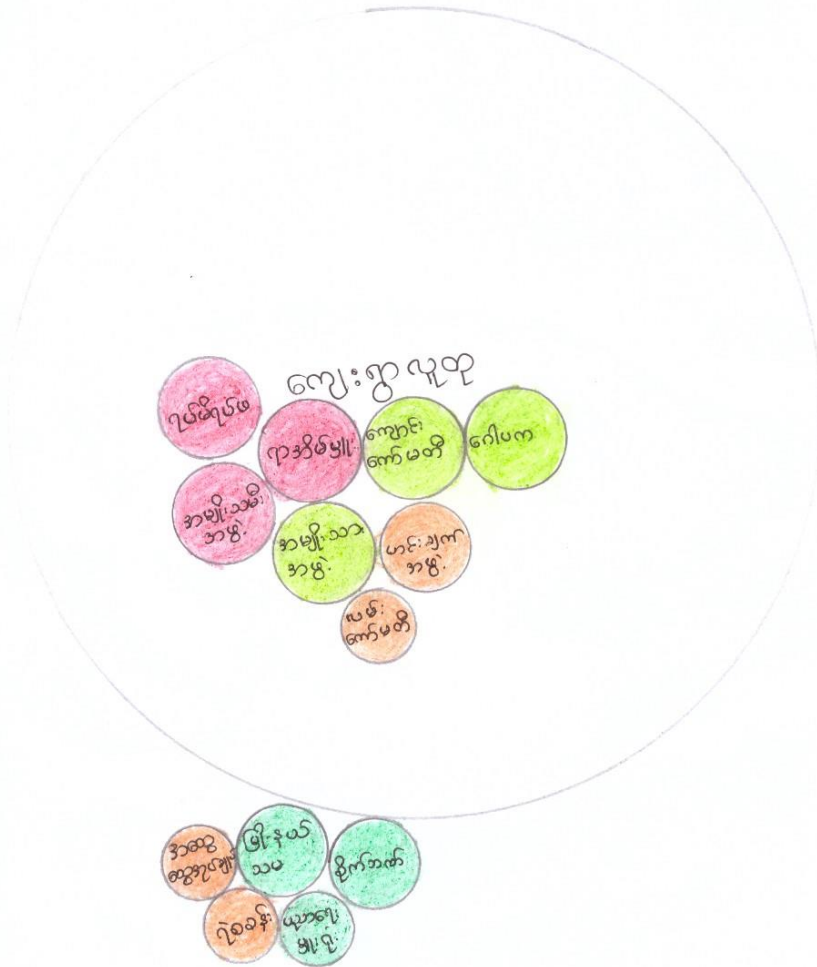 ကျေးရွာ လူထု
ရပ်မိရပ်ဖ
ရာအိမ်မှူး
ကျောင်း
ကော်မတီ
ဂေါပက
အမျိုးသမီး
အဖွဲ့
အမျိုးသား
အဖွဲ့
ဟင်းချက်
အဖွဲ့
လမ်း
ကော်မတီ
အထွေ
မြို့နယ်
သမ
စိုက်ဘဏ်
ရဲစခန်း
ပညာရေး
မှူးရုံး